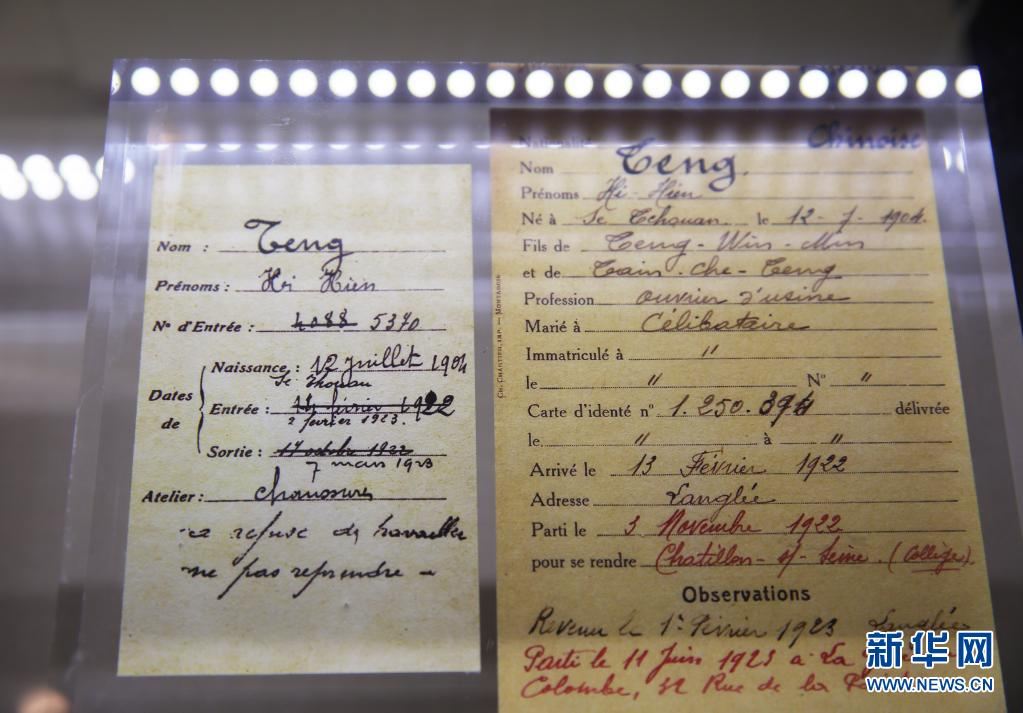 Nom : Teng
Prénoms : Hi Hien
No d'Entrée : 4088 5370
Dates de
Naissance : 12 Juillet 1904
Se Tchouan
Entrée : 14 février 1922
2 février 1923.
Sortie : 17 octobre 1922
7 mars 1923
Atelier : chaussures
a refusé de travailler
ne pas reprendre -
Nationalité Chinoise
Nom Teng.
Prénoms Hi-Hien
Né à Se Tchouan le 12-7-1904.
Fils de Teng-Win-Min
et de Tain-Che-Teng
Profession ouvrier d'usine
Marié à Célibataire
Immatriculé à "
le " No "
Carte d'identé no 1.250.394 délivrée
le " à "
Arrivé le 13 Février 1922
Adresse Langlée
Parti le 3 Novembre 1922
pour se rendre Chatillon-s/-Seine. (Collège).
Observations
Revenu le 1er Février 1923 Langlée
Parti le 11 Juin 1923 à La
Colombe, 39 Rue de la
CH. CHARTIER, IMP. — MONTARGIS
新华网
WWW.NEWS.CN